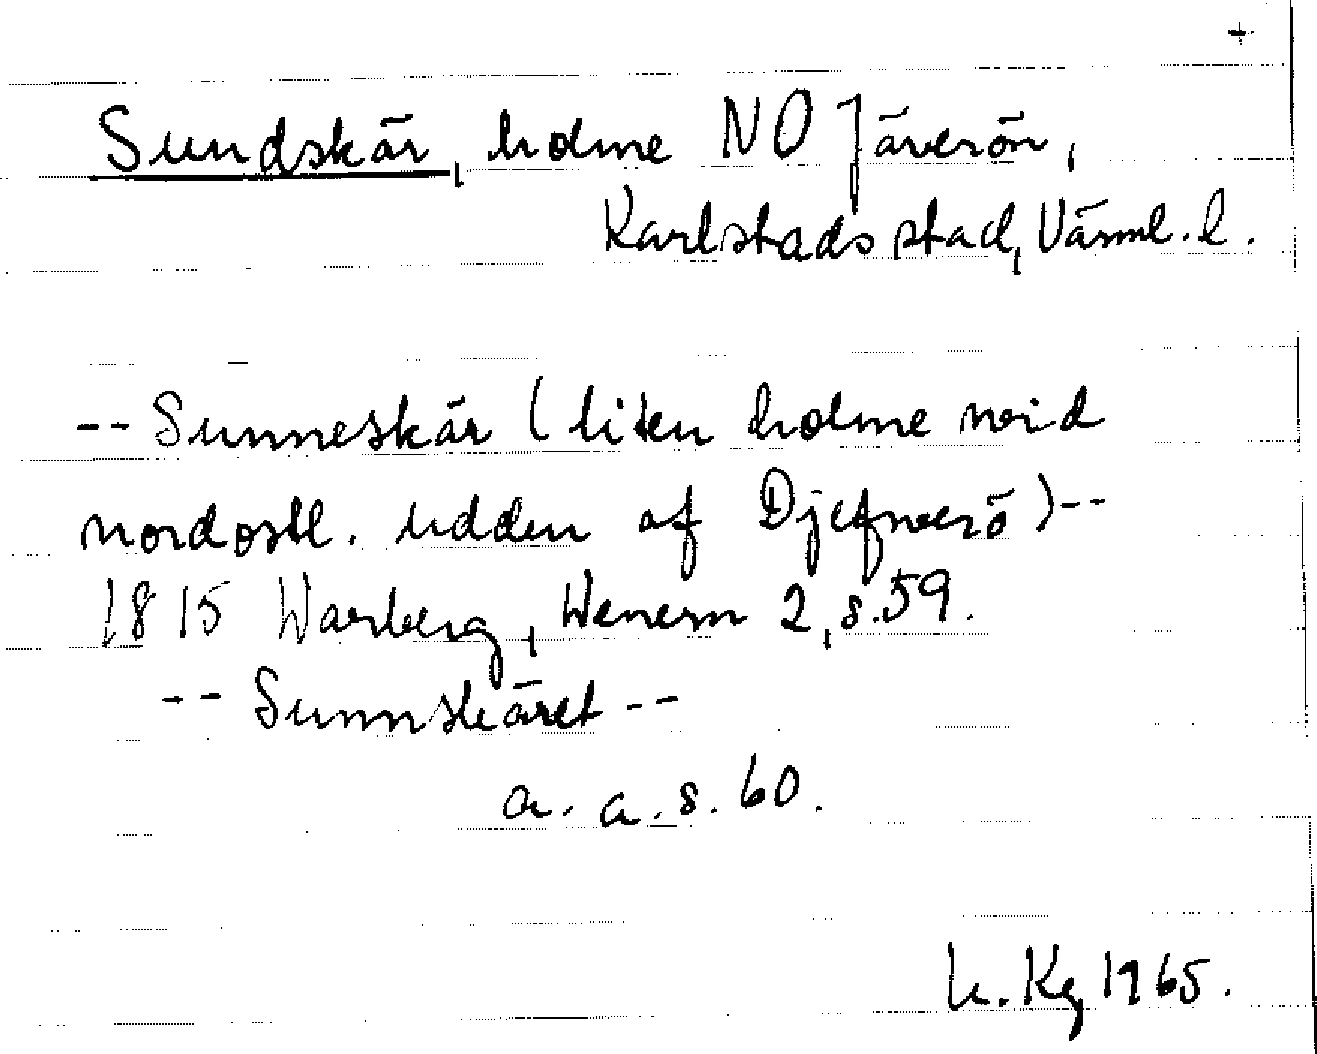 Sundskär, holme NO Jäverön,
Karlstads stad, Värml. l.
-- Sunneskär (liten holme wid
nordostl. udden af Djefverö) --
1815 Warberg, Wenern 2, s. 59.
-- Sunnskäret --
a. a. s. 60.
Kg 1965.